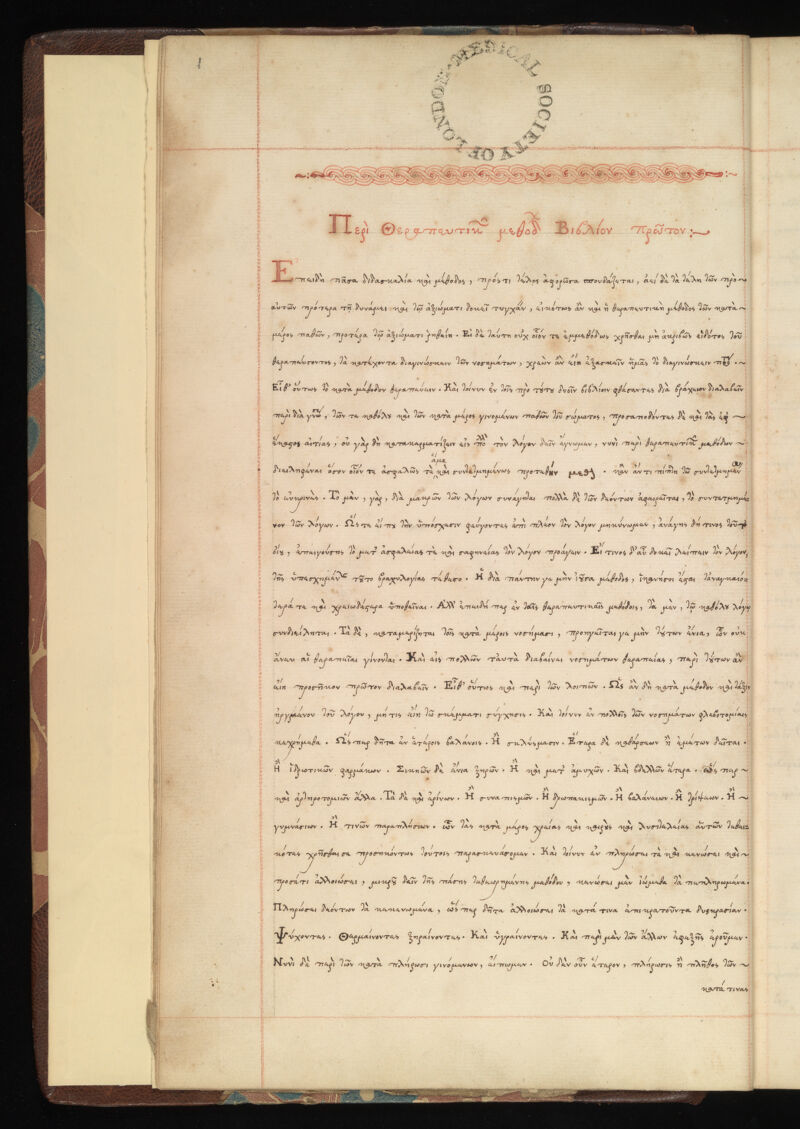 1
LONDON MEDICAL SOCIETY OF
Περὶ Θεραπευτικ μεθόδ Βιβλίον πρῶτον:
Ἐπειδὴ πᾶσα διδασκαλία καὶ μέθοδος, πρός τι τέλος ἀφορῶσα σπουδάζεται, ἀεὶ δὲ τὰ τέλη τῶν πρὸ
αὐτῶν πρότερα τῇ δυνάμει καὶ τῷ ἀξιώματι δοκεῖ τυγχάν, εἰκότως ἂν καὶ ἡ θεραπευτικὴ μέθοδος τῶν κατὰ
μέρος παθῶν, προτέρα τῷ ἀξιώματι. Εἰ δὲ ταύτῃ οὐχ οἷόν τε ἐμμεθόδως χρῆσθαι μὴ ἀκριβῶς εἰδότας τοῦ
θεραπεύοντος, τὰ κατέχοντα διαγινώσκειν τῶν νοσημάτων, χρεὼν ἂν εἴη ἐξασκεῖν ἡμᾶς τὸ διαγινώσκειν
Εἶθ' οὕτως τὸ κατὰ μέθοδον θεραπεύειν. Καὶ τοίνυν ἐν τοῖς πρὸ τούτου δυσὶν βιβλίοις φθάσαντες διὰ βραχέων διαλαβεῖν
περὶ διαγνώ, τῶν τε καθόλου καὶ τῶν κατὰ μέρος γινομένων παθῶν τοῦ σώματος, προσαποδόντες δὲ καὶ τὰς ἐφ
ἑκάστοις αἰτίας, οὐ γὰρ δὴ κατακερματίζειν εἰς πολ τὸν λόγον δεῖν ἔγνωμεν, νυνὶ περὶ θεραπευτικ μεθόδων
διειληφέναι ὅσον οἷόν τε ἀσφαλῶς τε ἅμα καὶ συντετμημένως. κἂν ἀντιπίπτῃ τῷ συντετμημέν
τὸ εὐκρινές. Τὸ μὲν, γὰρ, διὰ μακρῶν τῶν λόγων συνάγεται πολλὰ δὲ τῶν δεόντων ἀφαιρεῖται, τὸ συντετμημέ
νον τῶν λόγων. Ὥς τε εἴ που τὴν ὑπόσχεσιν φεύγοντες ἐπὶ πλέον τὸν λόγον μηκύνωμεν, ἀνάγκης δή τινος
, ἐπειγούσης τὸ μετ' ἀσφαλείας τε καὶ σαφηνείας τὸν λόγον προάγειν. Εἴ τινος δ' αὖ δοκεῖ λείπειν τὸν λόγον,
τῆς ὑπεσχημέν τοῦτο βραχυλογίας τιθέσθω. Ἡ διὰ πάντων γε μὴν ἰοῦσα μέθοδος, ἱκανῆσοι ἔσται τἀναγκαιό
τερά τε καὶ χρειωδέστερα ὑποβαῖναι. Ἀλλ' ἐπειδή περ ἐν ταῖς θεραπευτικαῖς μεθόδοις, τὰ μὲν, τῷ καθόλου λόγῳ
συνδιείληπται. Τὰ δὲ, καταμερίζεται τοῖς κατὰ μέρος νοσήμασι, προηγεῖταί γε μὴν τούτων ἔνια, ὧν οὐκ
ἄνευ αἱ θεραπεῖαι γίνονται. Καὶ εἰς πολλῶν ταὐτὰ διαβαίνει νοσημάτων θεραπείας, περὶ τούτων ἂν
εἴη προσῆκον πρῶτον διαλαβεῖν. Εἶθ' οὕτως καὶ περὶ τῶν λοιπῶν. Ὡς ἂν δὴ κατὰ μέθοδον καὶ τάξιν
ἠργμένον τοῦ λόγου, μή τις εἴη τῷ σκέμματι σύγχυσις. Καὶ τοίνυν ἐν πολλοῖς τῶν νοσημάτων φλεβοτομίας
κεχρήμεθα. Ὥς περ δῆτα ἐν ἑτέροις βαλάνοις. Ἢ σκλύσμασιν. Ἕτερα δὲ καθάρσεων ἢ ἐμέτων δεῖται.
Ἢ ἰδρωτικῶν φαρμάκων. Σικυῶν δὲ ἔνια ξηρῶν. Ἢ καὶ μετ' ἀμυχῶν. Καὶ βδελλῶν ἕτερα. ὥς περ
καὶ ἀρτηριοτομιῶν ἄλλα. Τὰ δὲ καὶ ἐρίνων. Ἢ συναπισμῶν. Ἢ δρωπακισμῶν. Ἢ βαλάνειων. Ἢ τρίψεων. Ἢ
γυμνάσιων. Ἢ τινῶν παραπλήσιων. ὧν τὰς κατὰ μέρος χρείας καὶ καιροὺς καὶ λυσιτελείας αὐτῶν
κότας χρῆσθαί σε προσηκόντως τούτοις παρασκευάσομεν. Καὶ τοίνυν ἐν πληρῶσαί τε καὶ κενῶσαι καὶ
προσέτι ἀλλοιῶσαι, μικροῦ δεῖν τῆς πάσης τεθεωρημένης μεθόδου, κενῶσαι μὲν εἰώμεθα τὰ πεπληρωμένα.
Πληρῶσαι δεόντων τὰ κεκενωμένα, ὥς περ δῆτα ἀλλοιῶσαι τὰ κατά τινα ἐπικρατοῦντα δυσκρασίαν.
Ψύχοντας. Θερμαίνοντας ξηραίνοντας. Καὶ ὑγραίνοντας. Καὶ περὶ μὲν τῶν ἄλλων ἐφεξῆς ἐροῦμεν.
Νυνὶ δὲ περὶ τῶν κατὰ πλήρωσι γινόμενων, εἴπωμεν. Οὐδὲν οὖν ἕτερον, πλήρωσιν ἢ πλῆθος τῶν
κατά τινας